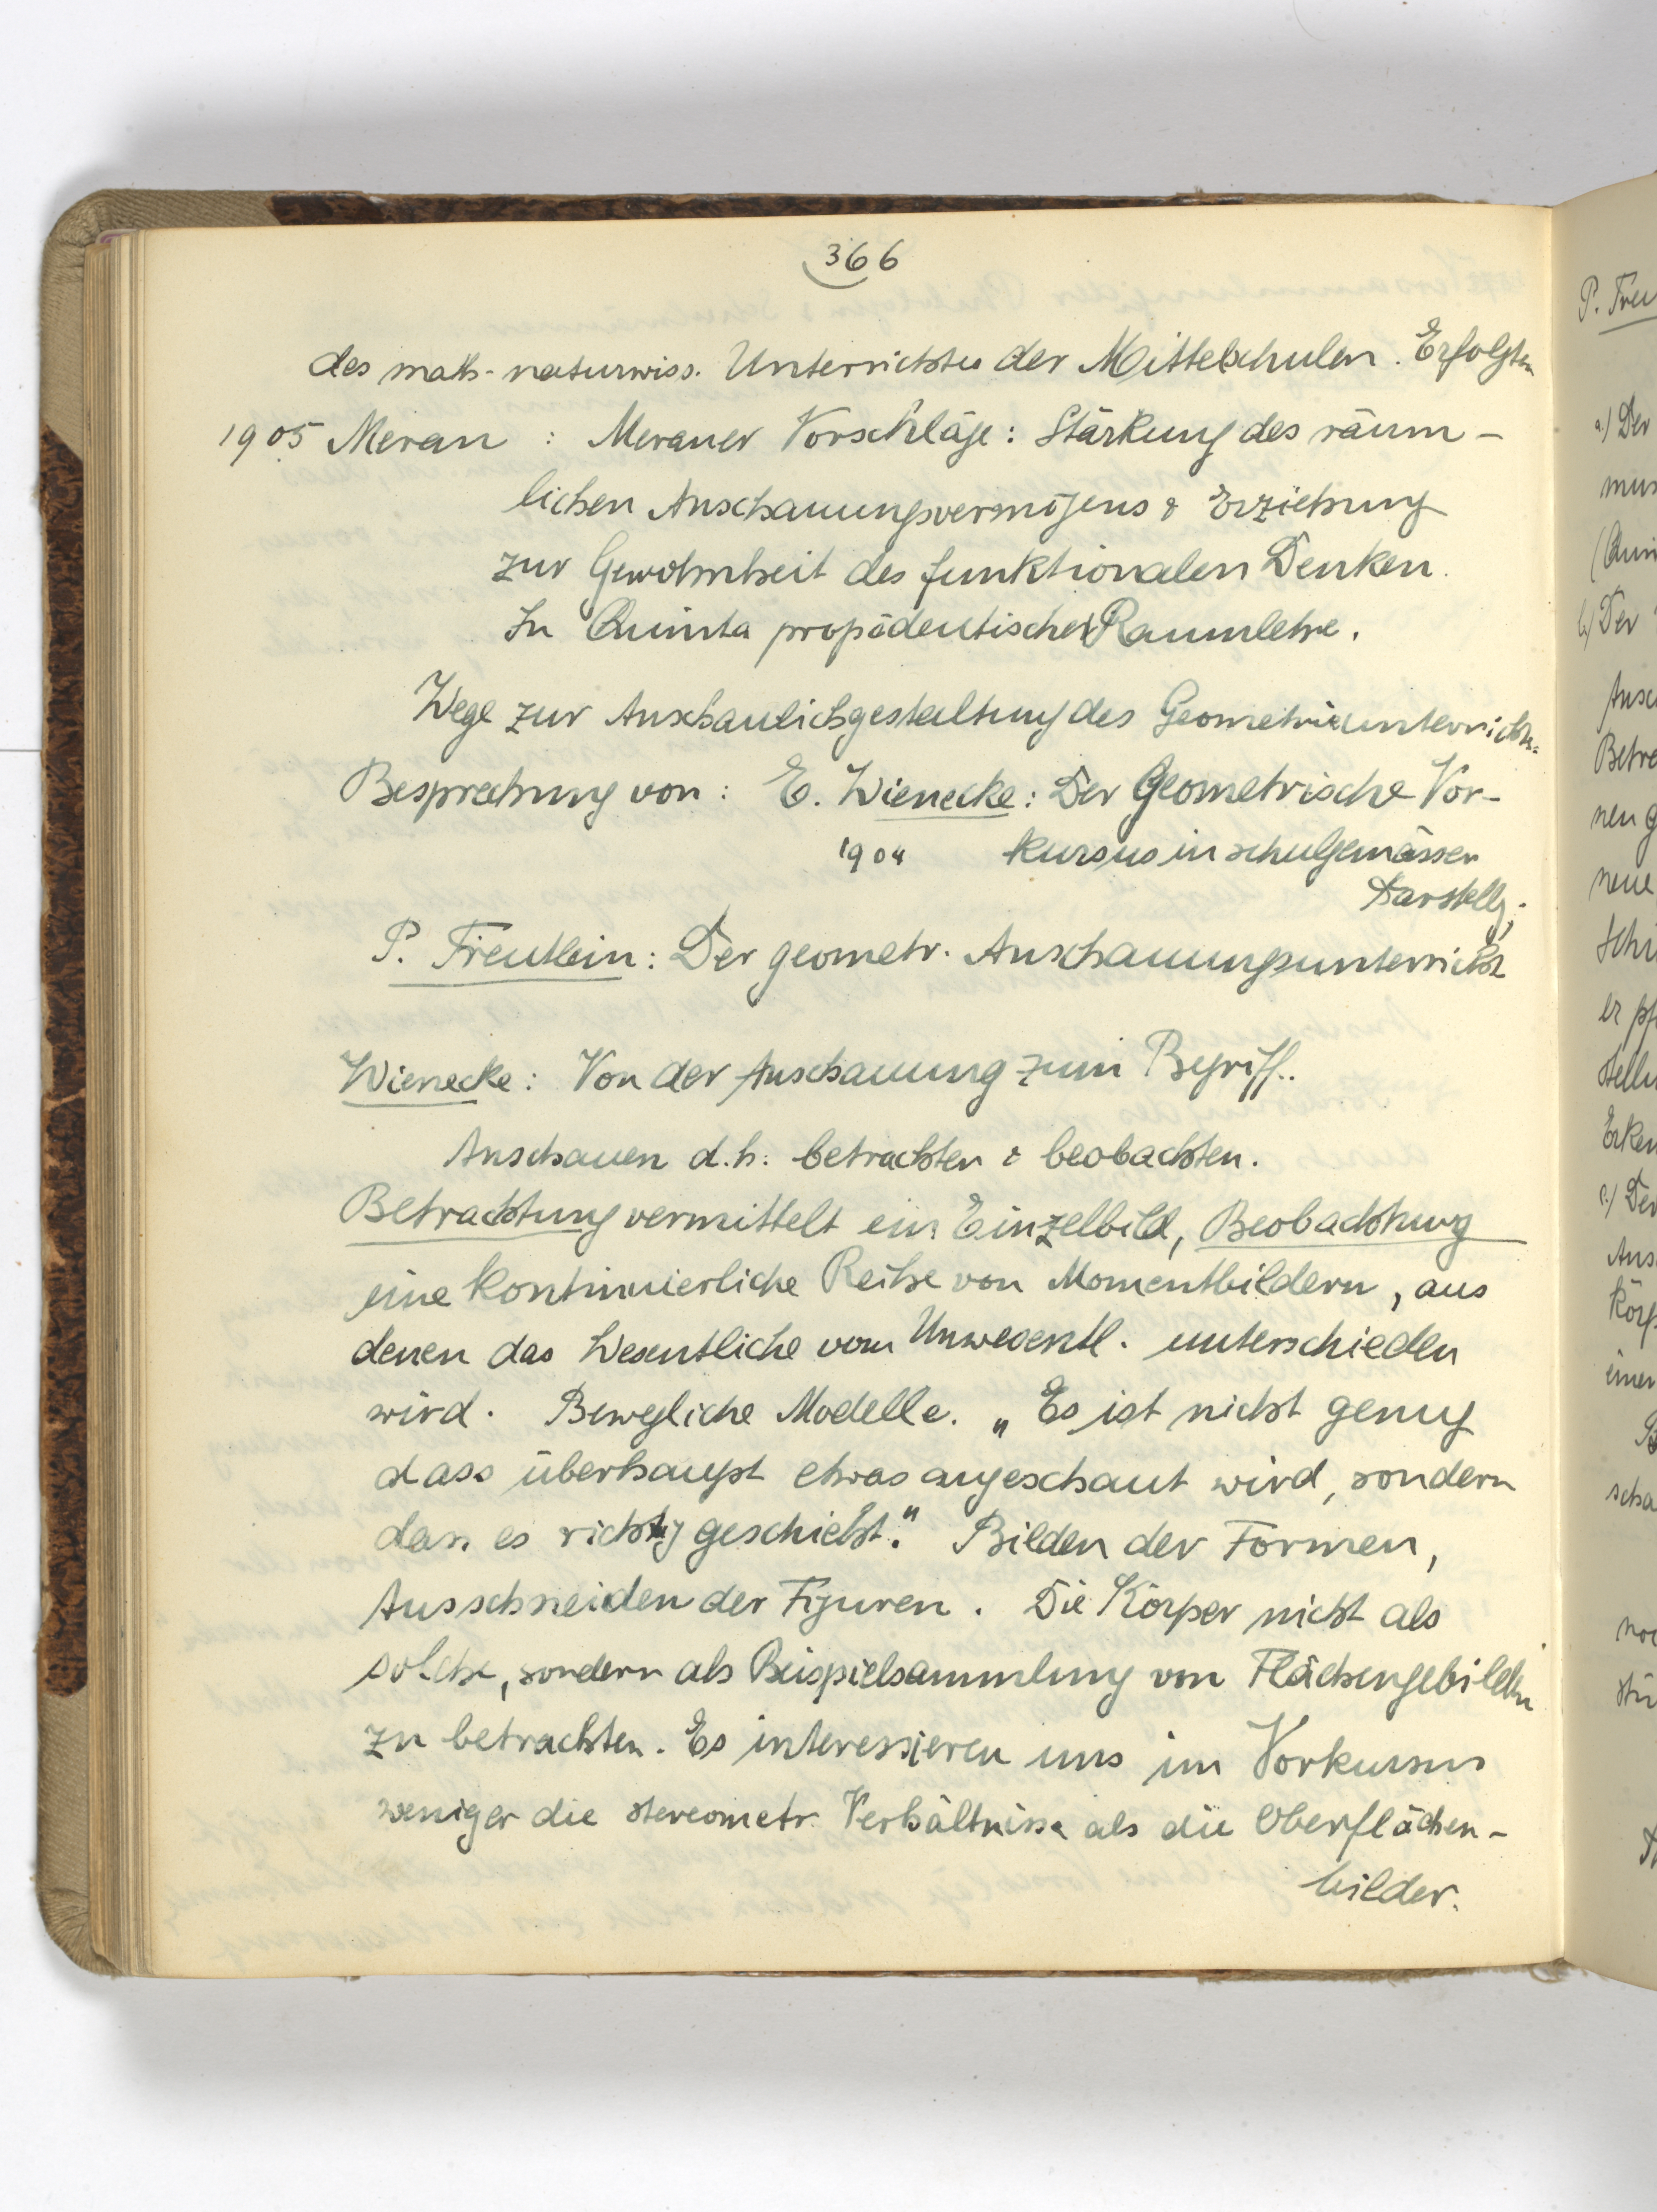 366
des math.-naturwiss. Unterrichtes der Mittelschulen. Erfolgten
1905 Meran : Meraner Vorschläge: Stärkung des räum-
lichen Anschauungsvermögens & Erziehung
zur Gewohnheit des funktionalen Denken.
In Quinta propädeutische Raumlehre.
Wege zur Anschaulichgestaltung des Geometrieunterrichts.
Besprechung von: E. Wienecke: Der Geometrische Vor-
1904 kursus in schulgemässer
Darstellg.
P. Treutlein: Der geometr. Anschauungsunterricht
Wienecke: Von der Anschauung zum Begriff.
Anschauen d.h. betrachten & beobachten.
Betrachtung vermittelt ein Einzelbild, Beobachtung
eine kontinuierliche Reihe von Momentbildern, aus
denen das Wesentliche vom Unwesentl. unterschieden
wird. Bewegliche Modelle. „Es ist nicht genug
dass überhaupt etwas angeschaut wird, sondern
dass es richtig geschieht." Bilden der Formen,
Ausschneiden der Figuren. Die Körper nicht als
solche, sondern als Beispielsammlung von Flächengebilden
zu betrachten. Es interessieren uns im Vorkursus
weniger die stereometr. Verhältnisse als die Oberflächen-
bilder.
P. Treu
a.) Der
b.) Der
Ansc
Betra
nen g
neue
Schi
er pf
stellu
Erken
c.) Der
Ans
Körp
einer
scha